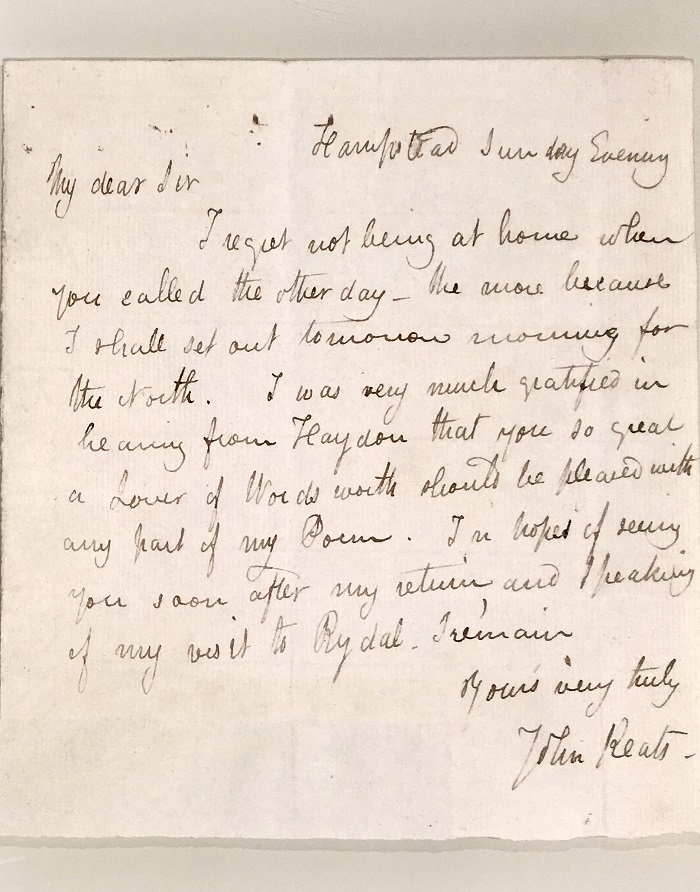 Hampstead Sunday Evening
My dear Sir
I regret not being at home when
you called the other day_ the more because
I shall set out tomorrow morning for
the North. I was very much gratified in
hearing from Haydon that you so great
a Lover of Wordsworth should be pleased with
any part of my Poem. In hopes of seeing
you soon after my return and speaking
of my visit to Rydal_ I remain
Yours very truly
John Keats_